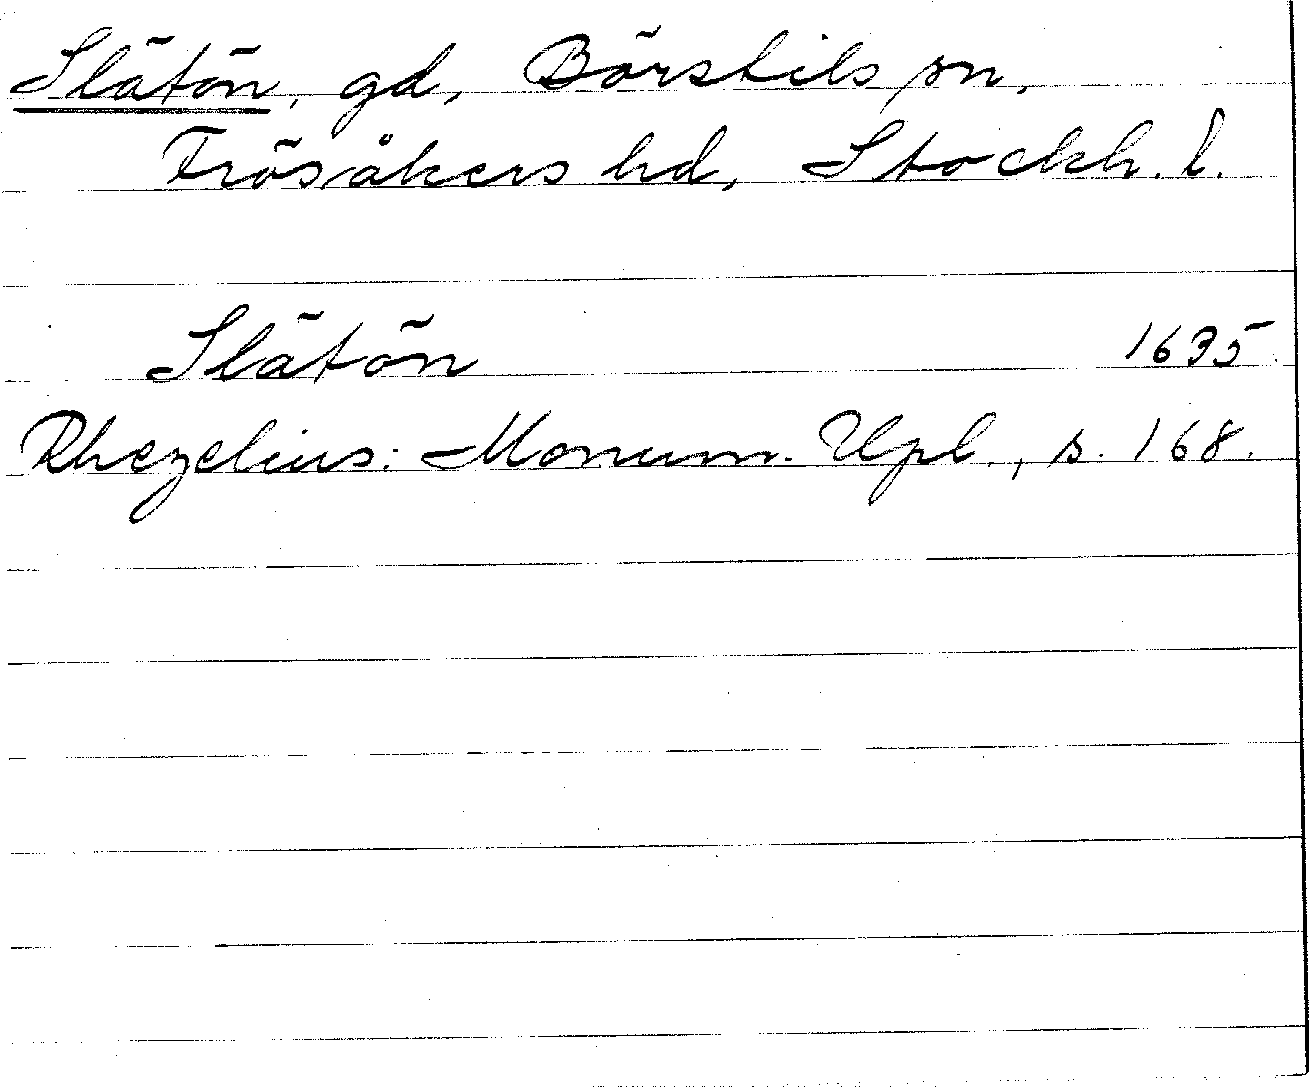 Slätön, gd, Börstils sn,
Frösåkers hd, Stockh. l.
Slätön 1635
Rhezelius: Monum. Upl., s. 168.